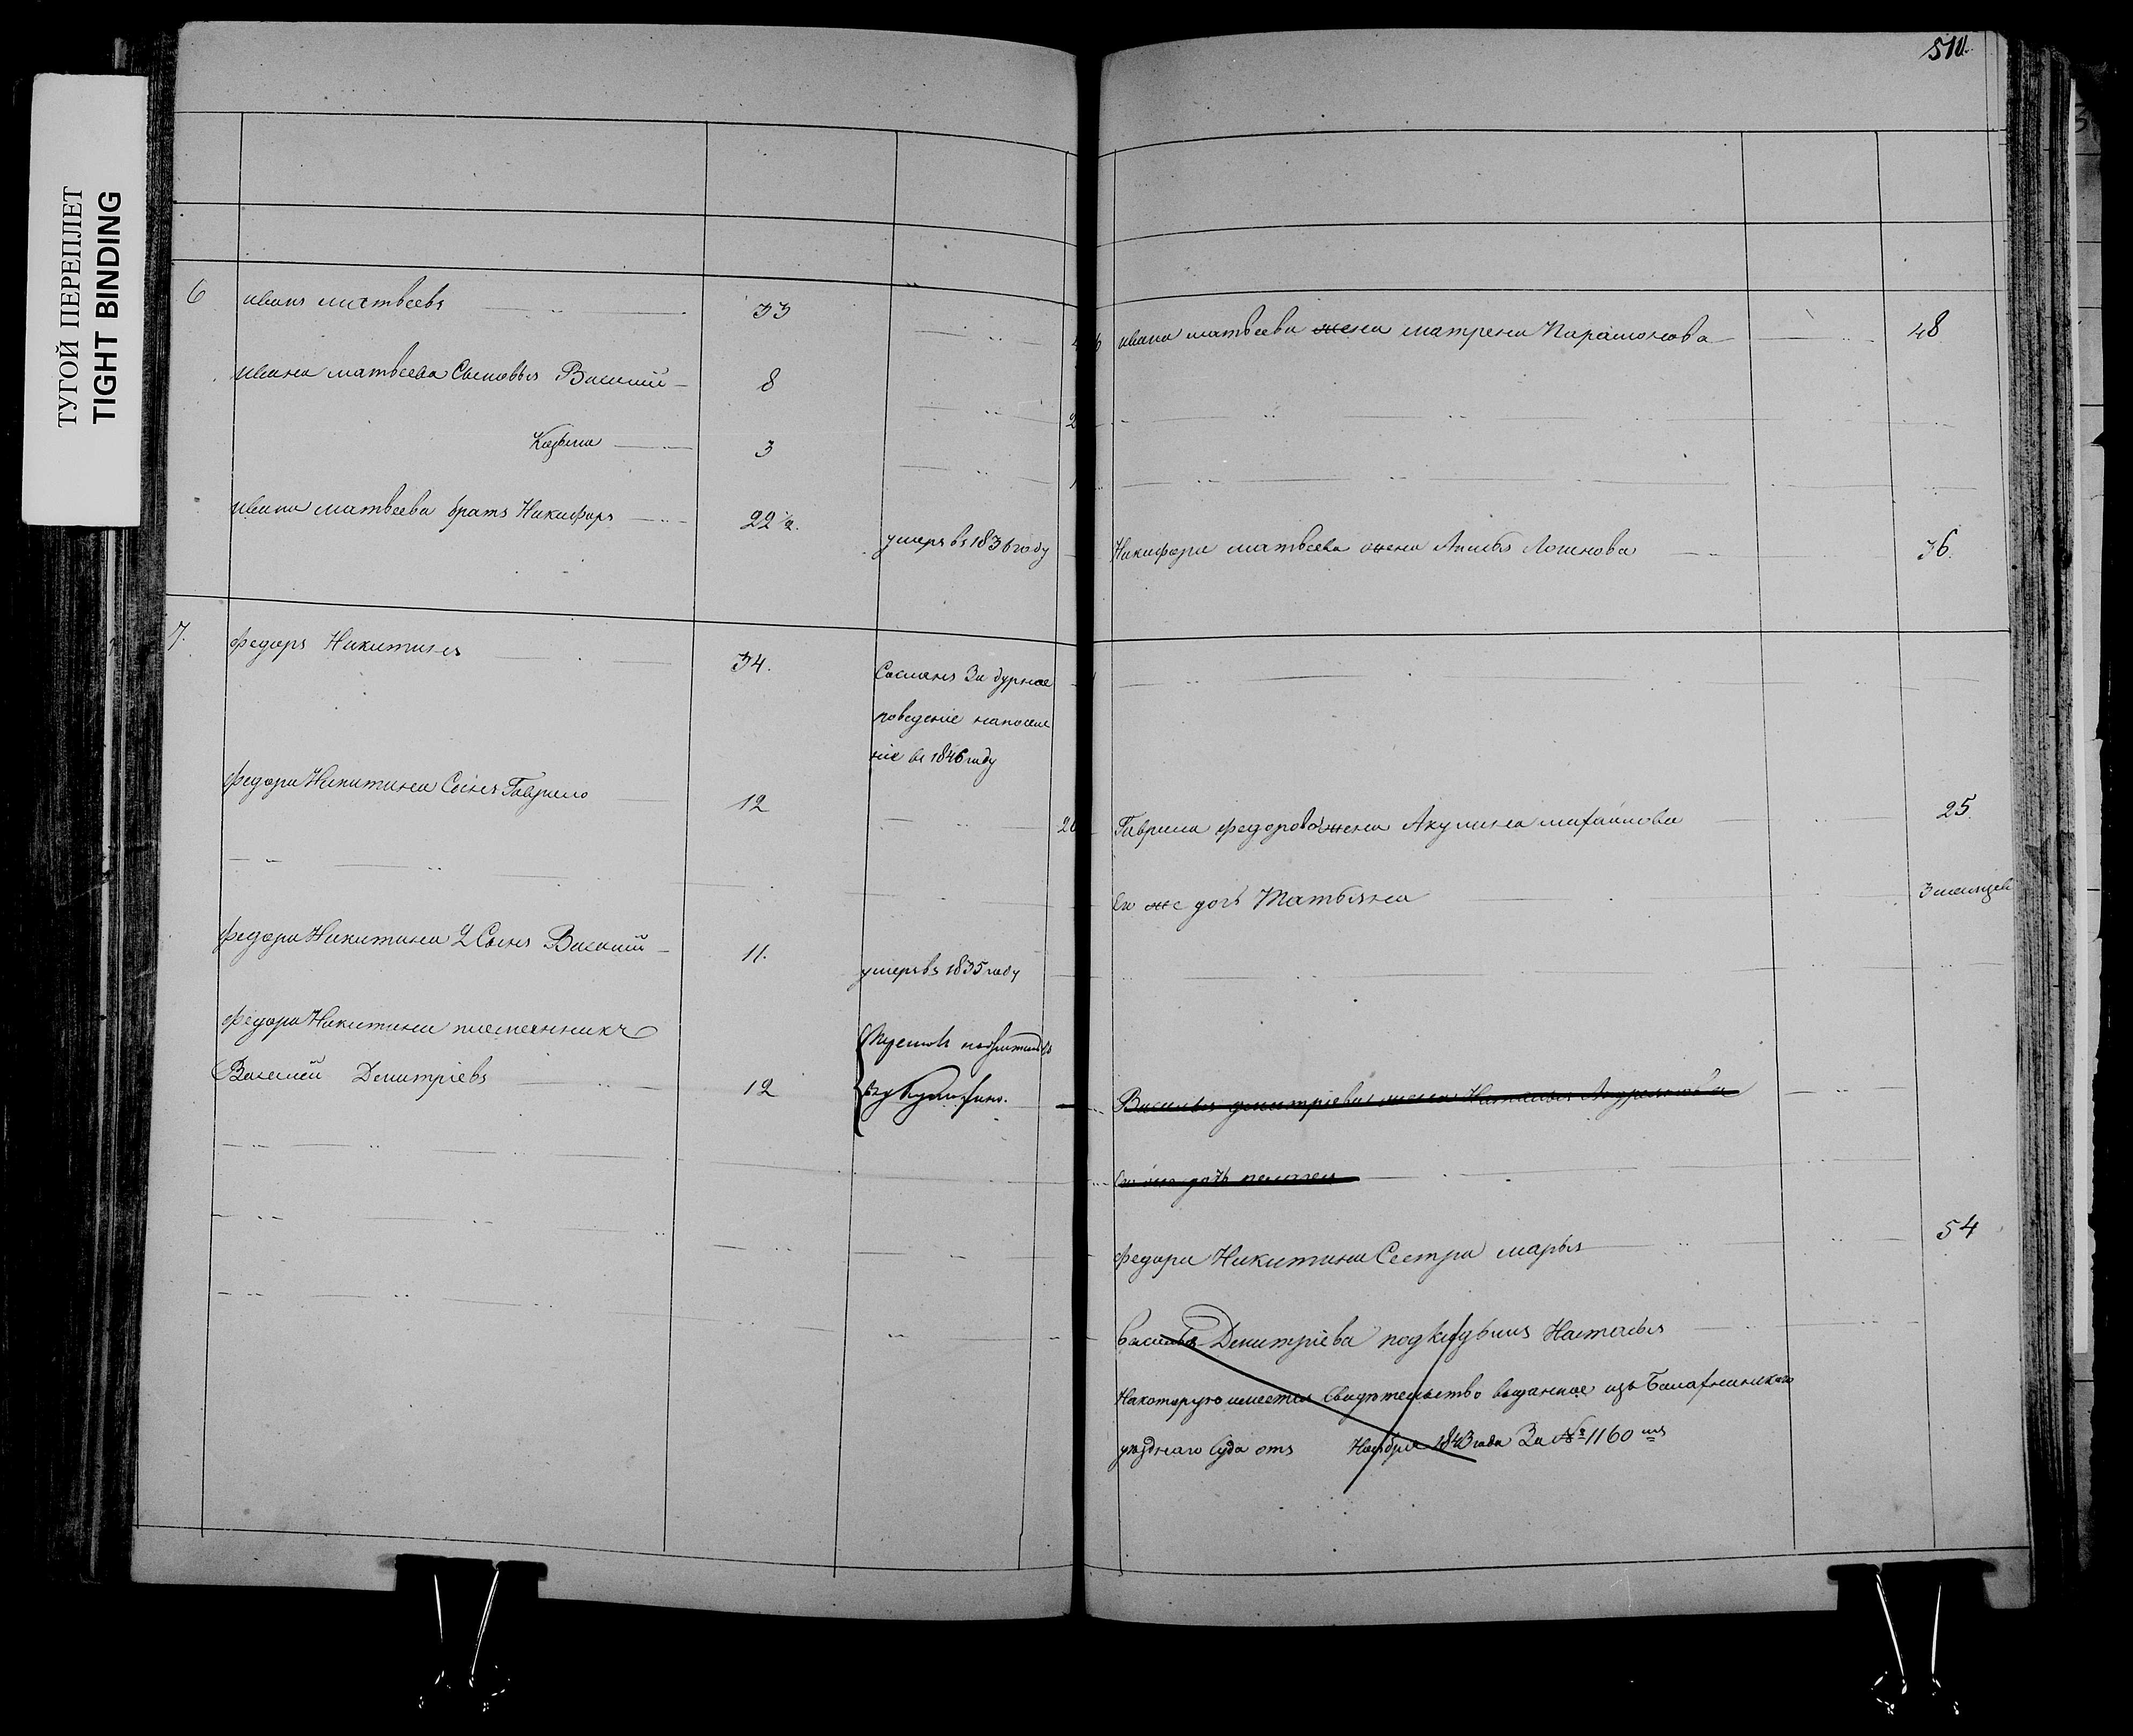 ТУГОЙ ПЕРЕПЛЕТ
TIGHT BINDING
6 иванъ матвеевъ 33
ивана матвеева Сыновья Василий 8
2
Кузьма 3
ивана матвеева братъ Никифоръ 22 1/2.
умеръ въ 1836 году
7. федоръ Никитинъ 34.
Сосланъ За дурное
поведение на поселе
ние въ 1846 году
федора Никитина Сынъ Гаврило 12
федора Никитина 2 Сынъ Василий 11.
умеръ въ 1835 году
федора Никитина племянникъ
Василей Дмитріевъ 12
6 ивана матвеева жена матрена Парамонова 48
Никифора матвеева жена Логинова 36.
Гаврила федорова жена Акулина михайлова 25.
Ево же дочь Татьяна 3 месяцев
Василья дмитріева жена Наталья
Ево же дочь пелагея
федора Никитина Сестра марья 54
Василья Дмитріева Наталья
На которую имеется Свидетельство выданное изъ Балахнинскаго
уезднаго Суда отъ Ноября 1843 года За № 1160 мъ